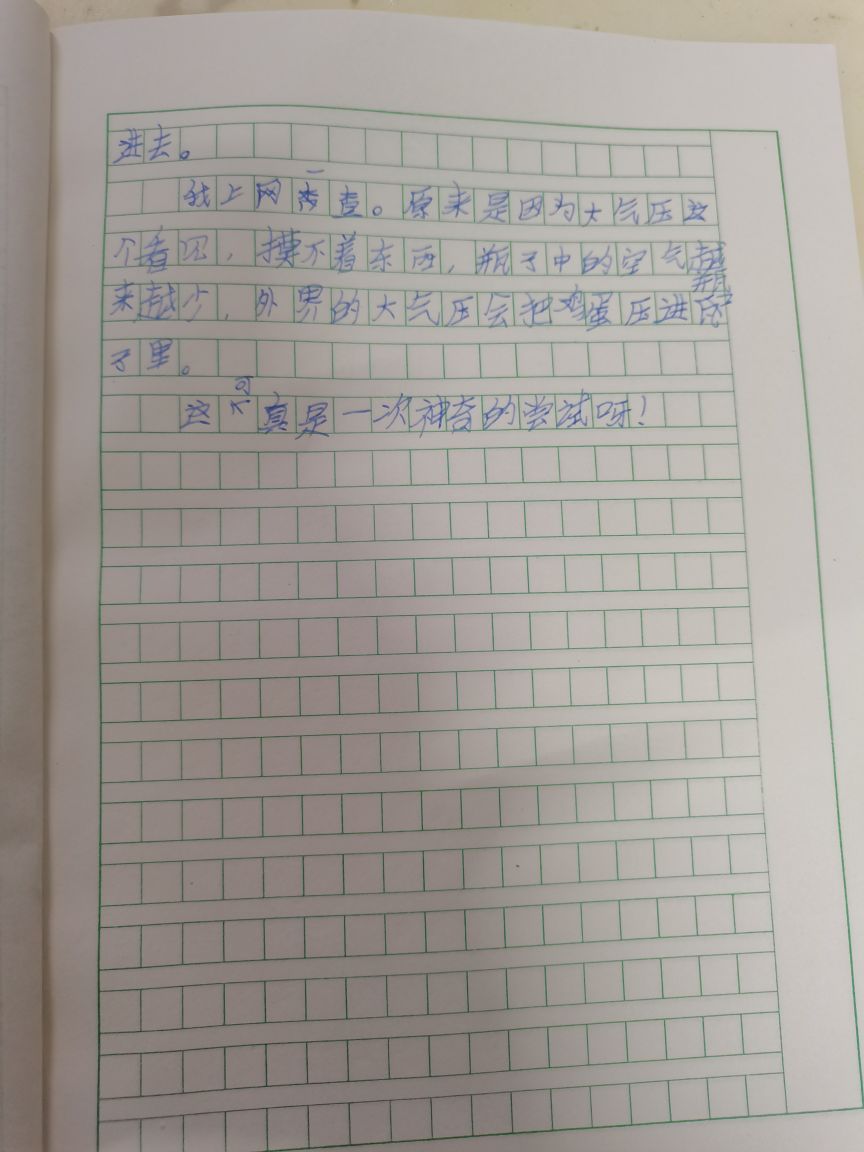 进去。
我上网查一查。原来是因为大气压这
个看见，摸不着东西，瓶子中的空气越
来越少，外界的大气压会把鸡蛋压进瓶
子里。
这可真是一次神奇的尝试呀！